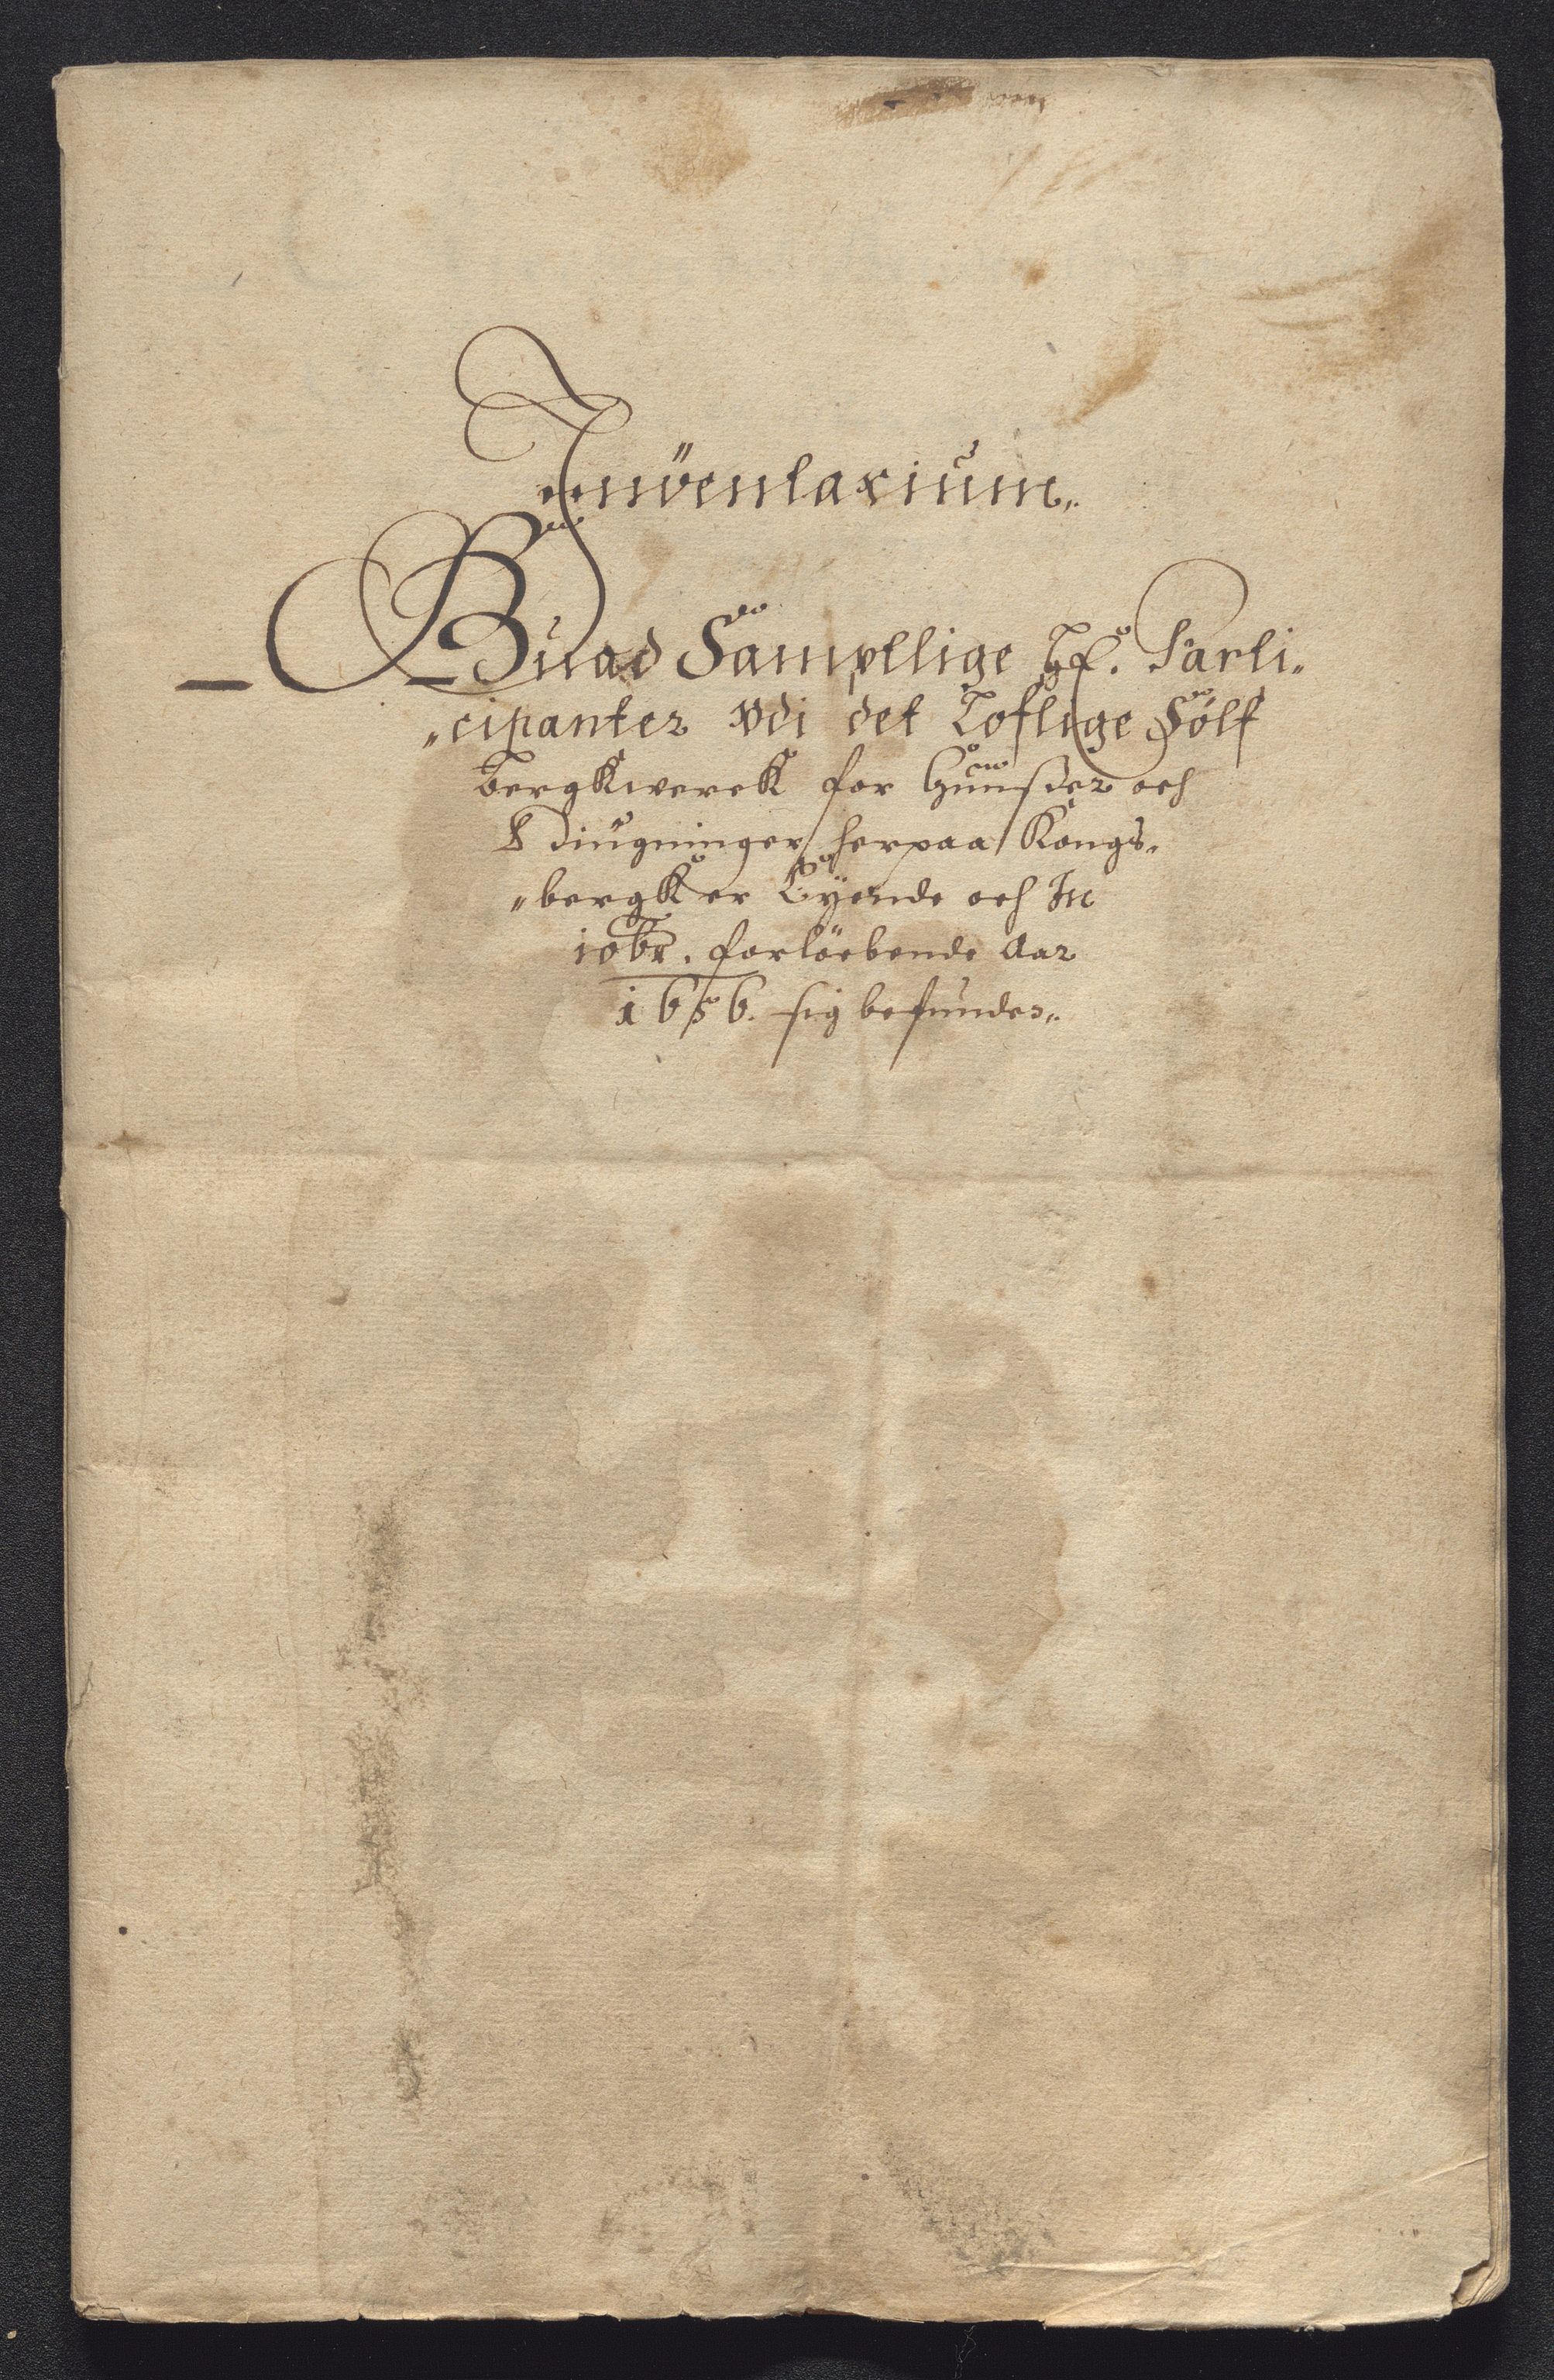 Inventarium.
Huad Samptlige Hr. Parti-
cipanter vdi det Loflige Sölf
bergkwerck for huusser och
bÿgninger herpaa Kongs-
bergk er Eÿende och In
10br. forlöebende Aar
1656. sig befunder.